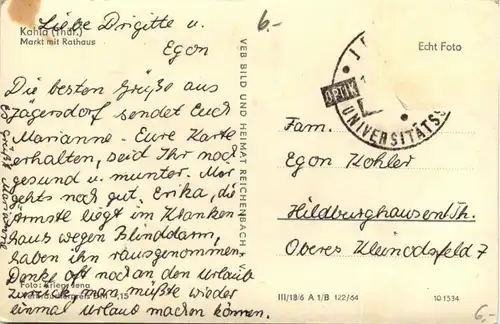 Liebe Brigitte u.
Egon
Kahla (Thür.)
Markt mit Rathaus
6.-
Die besten Grüße aus
Jägersdorf sendet Euch
Marianne. Eure Karte
erhalten, seid Ihr noch
gesund u. munter. Mir
gehts noch gut. Erika, die
Ärmste liegt im Kranken-
haus wegen Blinddarm,
haben ihn rausgenommen.
Denke oft noch an den Urlaub
zurück, man müßte wieder
einmal Urlaub machen können.
Es grüßt Marianne
Foto: Krieg, Jena
Verbraucherpreis DM 0,15
VEB BILD UND HEIMAT REICHENBACH
Echt Foto
UNIVERSITÄTSS
Fam.
Egon Kohler
Hildburghausen/Th.
Oberes Kleinodsfeld 7
III/18/6 A 1/B 122/64
10 1534
6,-